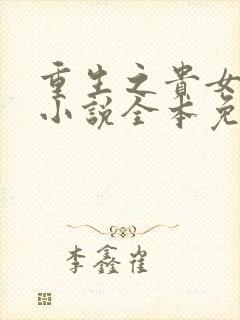 重生之貴女
小說全本免
李鑫雀